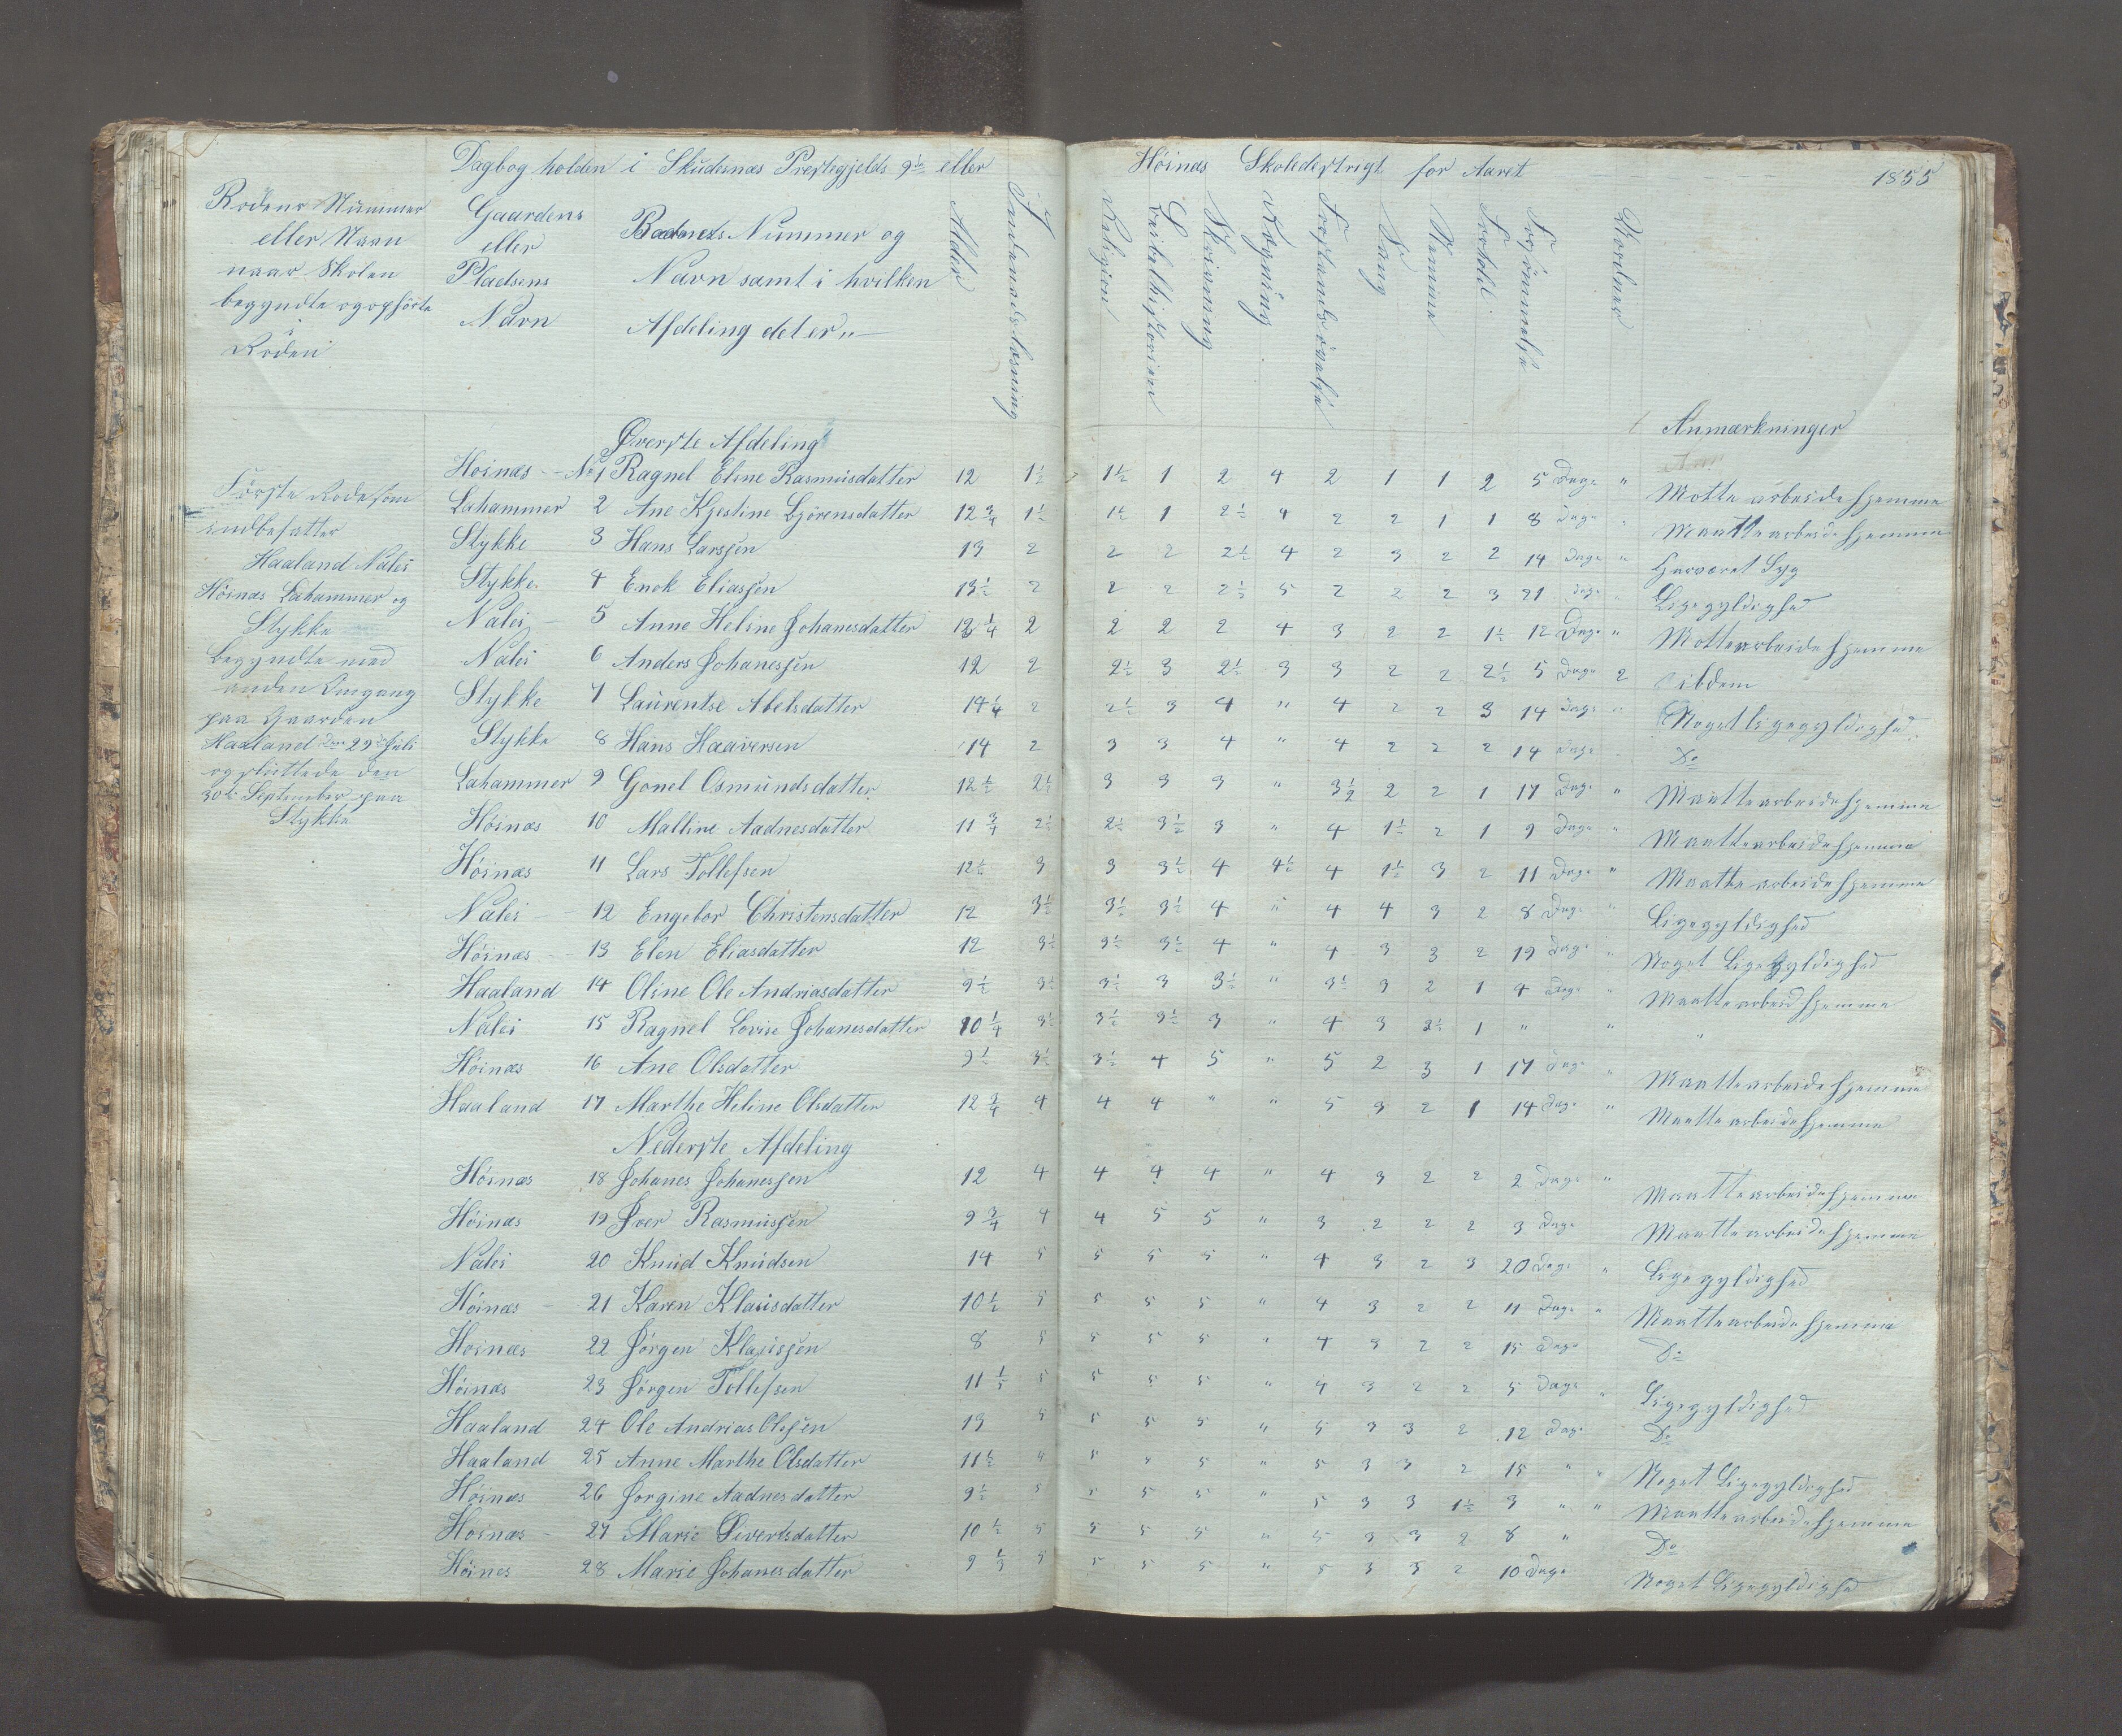 Dagbog holden i Skudesnæs Prestegjelds 9de eller Höinæs Skoledestrigt for Aaret 1855
Rodens Nummer eller Navn naar Skolen begyndte og ophörte i Roden
Gaardens eller Pladsens Navn
Barnets Nummer og Navn samt i hvilken Afdeling det er
Alder
Indenadslæsning
Religion
Bibelhistorien
Skrivning
Regning
Forstandsövelse
Sang
Nemme
Forhold
Forsömmelse
Uordner
Anmærkninger
Förste Rode som
indbefatter
Haaland Nalei
Höinæs Lahammer og
Stykke
Begyndte med
anden Omgang
paa Gaarden
Haaland den 29de Juli
og sluttede den
30te September paa
Stykke
Øverste Afdeling
Hoinæs No 1 Ragnel Eline Rasmusdatter 12 1½ 1½ 1 2 4 2 1 1 2 5 Dage " Motte arbeide hjemme
Lahammer 2 Ane Kjestine Björensdatter 12¾ 1½ 1½ 1 2½ 4 2 2 1 1 8 Dage Maatte arbeide hjemme
Stykke 3 Hans Larssen 13 2 2 2 2½ 4 2 3 2 2 14 Dage " Harværet Syg
Stykke 4 Enok Eliassen 13½ 2 2 2 2½ 5 2 2 2 3 21 Dage Ligegyldighed
Nalei 5 Anne Heline Johanesdatter 12¼ 2 2 2 2 4 3 2 2 1½ 12 Dage " Motte arbeide hjemme
Nalei 6 Anders Johanessen 12 2 2½ 3 2½ 3 3 2 2 2½ 5 Dage 2 ibdem
Stykke 7 Laurentse Abelsdatter 14¼ 2 2½ 3 4 " 4 2 2 3 14 Dage " Noget ligegyldighed
Stykke 8 Hans Haaversen 14 2 3 3 4 " 4 2 2 2 14 Dage Do
Lahammer 9 Gonel Osmundsdatter 12½ 2½ 3 3 3 " 3½ 2 2 1 17 Dage " Maatte arbeide hjemme
Höinæs 10 Malline Aadnesdatter 11¾ 2½ 2½ 3½ 3 " 4 1½ 2 1 9 Dage " Maatte arbeide hjemme
Höinæs 11 Lars Tollefsen 12½ 3 3 3½ 4 4½ 4 1½ 3 2 11 Dage " Maatte arbeide hjemme
Nalei 12 Engebor Christensdatter 12 3½ 3½ 3½ 4 " 4 4 3 2 8 Dage " Ligegyldighed
Höinæs 13 Elen Eliasdatter 12 3½ 3½ 3½ 4 " 4 3 3 2 19 Dage " Noget Ligegyldighed
Haaland 14 Oline Ole Andriasdatter 9½ 3½ 3½ 3 3½ " 3½ 3 2 1 4 Dage " Maatte arbeid hjemme
Nalei 15 Ragnel Lovise Johanesdatter 10¼ 3½ 3½ 3½ 3 " 4 3 2½ 1 " " "
Höinæs 16 Ane Olsdatter 9½ 3½ 3½ 4 5 " 5 2 3 1 17 Dage " Maatte arbeide hjemme
Haaland 17 Marthe Heline Olsdatter 12¾ 4 4 4 " " 5 3 2 1 14 Dage " Maatte arbeide hjemme
Nederste Afdeling
Höinæs 18 Johanes Johanessen 12 4 4 4 4 " 4 3 2 2 2 Dage " Maatte arbeide hjemme
Höinæs 19 Iver Rasmussen 9¾ 4 4 5 5 " 3 2 2 2 3 Dage Maatte arbeide hjemme
Nalei 20 Knud Knudsen 14 5 5 5 5 " 4 3 2 3 20 Dage " Ligegyldighed
Höinæs 21 Karen Klausdatter 10½ 5 5 5 5 " 4 3 2 2 11 Dage " Maatte arbeide hjemme
Hoinæs 22 Jörgen Klaussen 8 5 5 5 5 " 4 3 2 2 15 Dage Do
Höinæs 23 Jörgen Tollefsen 11 5 5 5 5 " 4 3 2 2 5 Dage " Ligegyldighed
Haaland 24 Ole Andrias Olssen 13 5 5 5 5 " 5 3 3 2 12 Dage Do
Haaland 25 Anne Marthe Olsdatter 11½ 5 5 " 5 " 5 3 3 2 15 " " Noget Ligegyldighed
Höinæs 26 Jorgine Aadnesdatter 9½ 5 5 5 5 " 5 3 3 1½ 3 " " Maatte arbeide hjemme
Hoinæs 27 Marie Sivertsdatter 10½ 5 5 5 5 " 5 3 3 2 8 " Do
Höines 28 Marie Johanesdatter 9 5 5 5 5 " 5 3 3 2 10 Dage Noget Ligegyldighed